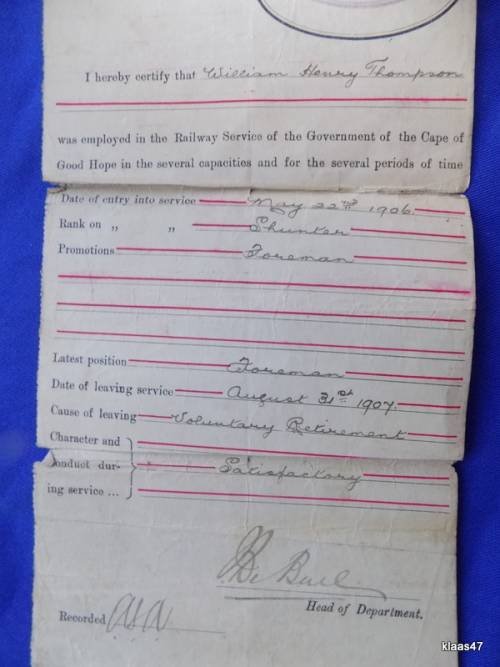 I hereby certify that William Henry Thompson
was employed in the Railway Service of the Government of the Cape of
Good Hope in the several capacities and for the several periods of time
Date of entry into service May 22nd 1906.
Rank on „ „ Shunter
Promotions Foreman
Latest position Foreman
Date of leaving service August 31st 1907.
Cause of leaving Voluntary Retirement
Character and
Conduct dur- Satisfactory
ing service ...
Head of Department.
Recorded
klaas47